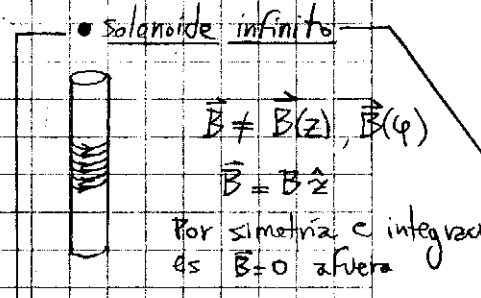 • solenoide infinito
B⃗ ≠ B⃗(z), B⃗(φ)
B⃗ = B ẑ
Por simetría e integrac
es B⃗=0 afuera